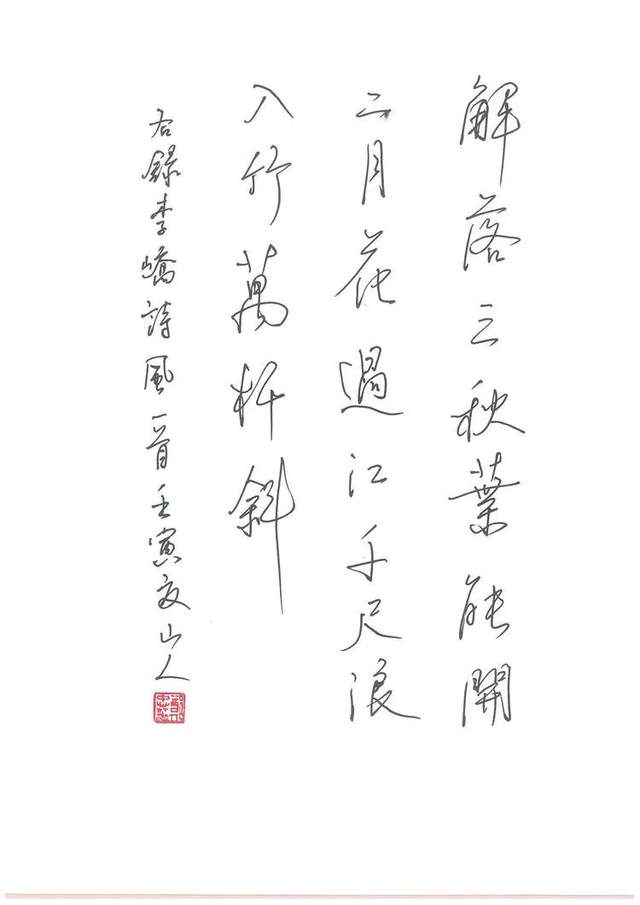 解落三秋葉能開
二月花過江千尺浪
入竹萬杆斜
右錄李嶠詩風一首壬寅夏山人